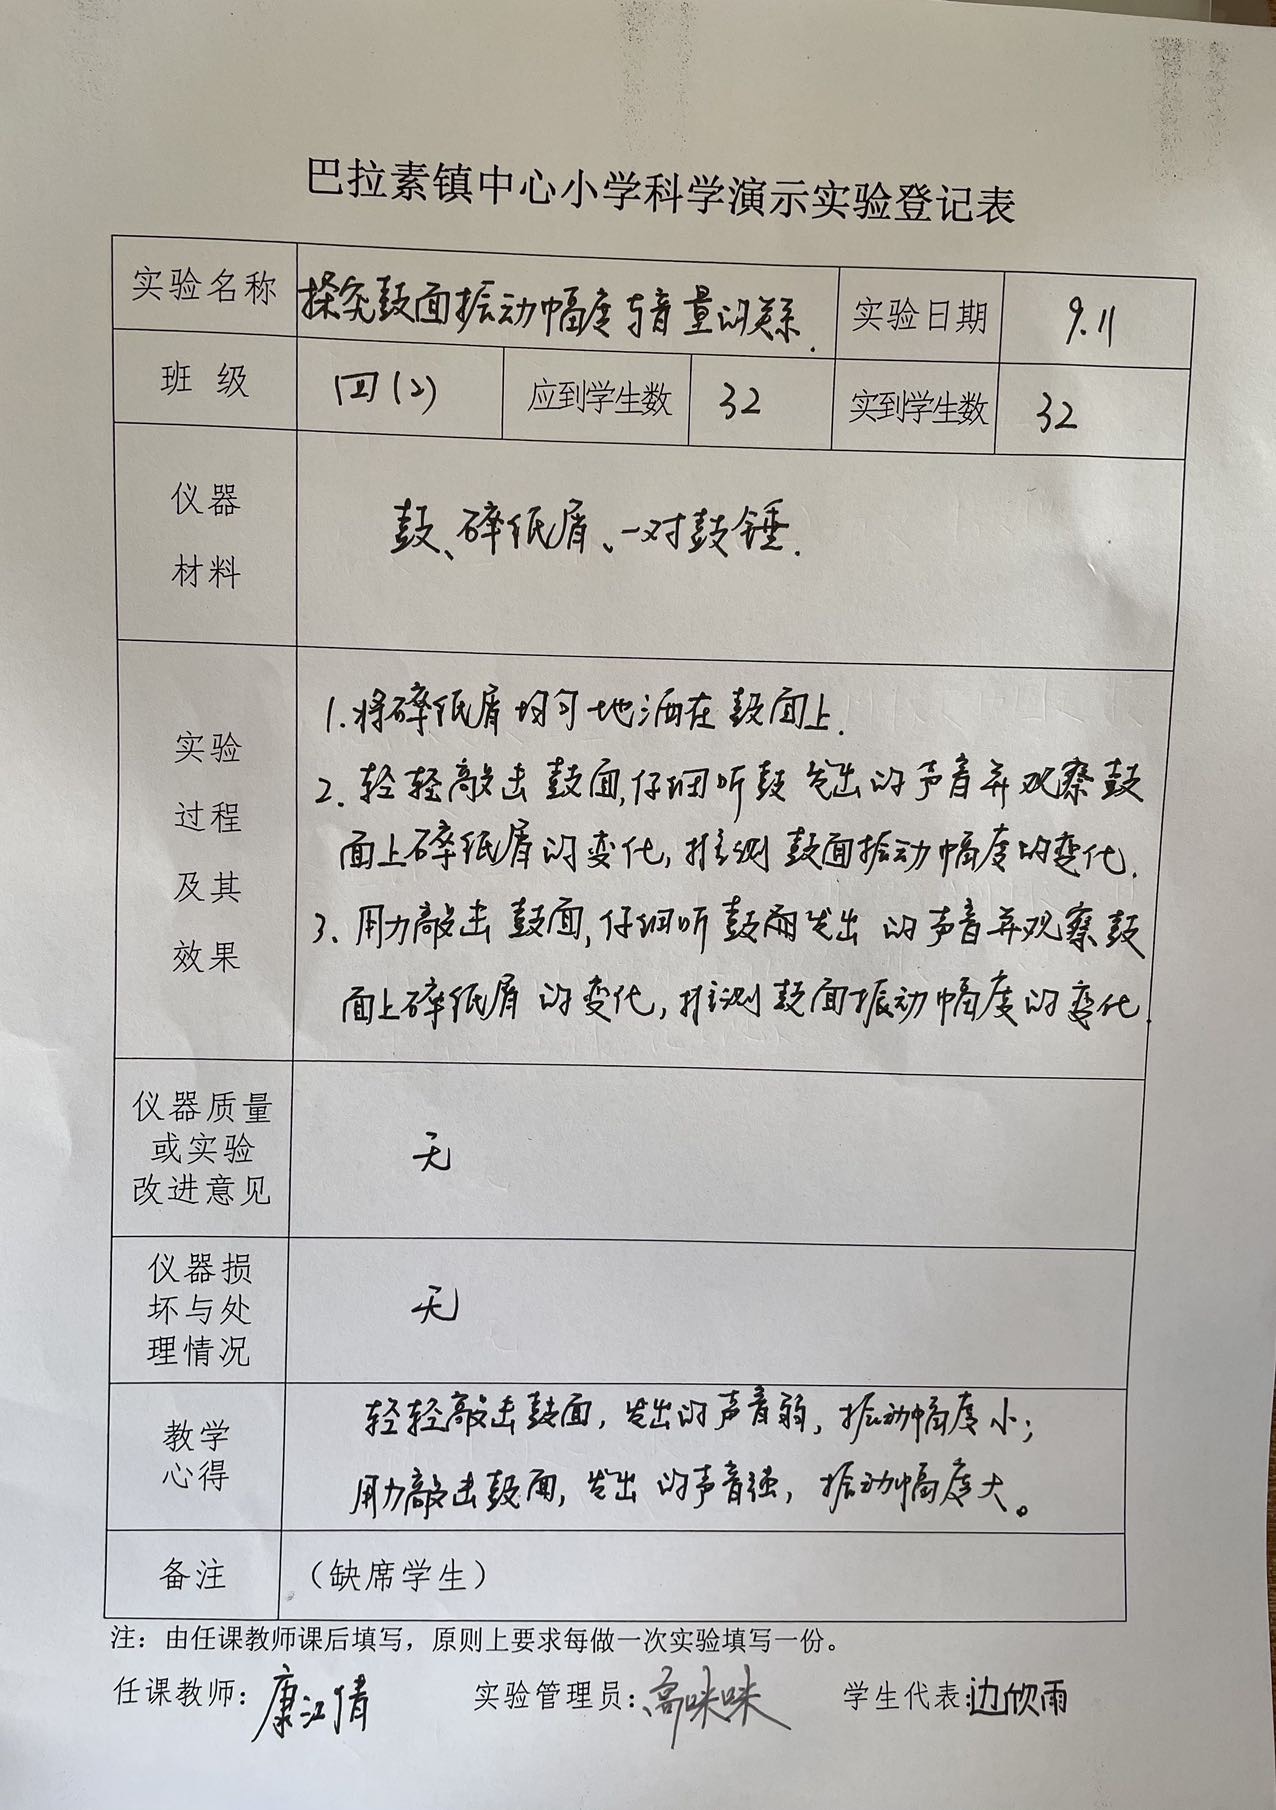 巴拉素镇中心小学科学演示实验登记表
实验名称 探究鼓面振动幅度与音量的关系. 实验日期 9.11
班 级 四(2) 应到学生数 32 实到学生数 32
仪器
材料
鼓、碎纸屑、一对鼓锤.
实验
过程
及其
效果
1.将碎纸屑均匀地洒在鼓面上.
2.轻轻敲击鼓面,仔细听鼓发出的声音并观察鼓
面上碎纸屑的变化,推测鼓面振动幅度的变化.
3、用力敲击鼓面,仔细听鼓面发出的声音并观察鼓
面上碎纸屑的变化,推测鼓面振动幅度的变化.
仪器质量
或实验
改进意见
无
仪器损
坏与处
理情况
无
教学
心得
轻轻敲击鼓面,发出的声音弱,振动幅度小;
用力敲击鼓面,发出的声音强,振动幅度大。
备注 （缺席学生）
注：由任课教师课后填写，原则上要求每做一次实验填写一份。
任课教师：康江倩 实验管理员：高咪咪 学生代表：边欣雨